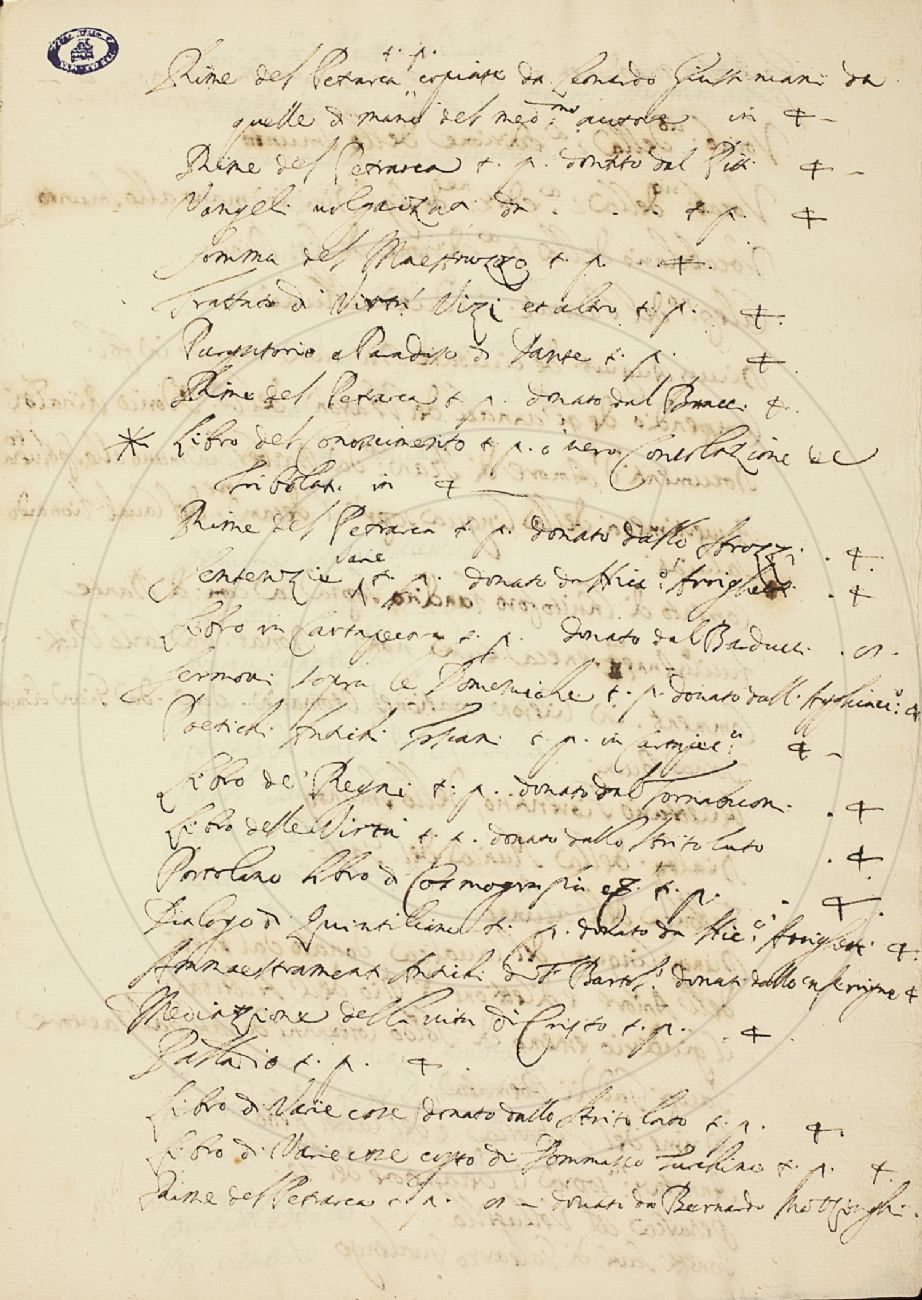 Rime del Petrarca t. p. copiate da Leonardo Giustiniani da
quelle di mano del med.mo autore in
Rime del Petrarca t. p. donato dal Pitti
Vangeli volgarizzati da . . . t. p.
Somma del Maestruzzo t. p.
Trattato di Virtù Vizi et altro t. p.
Purgatorio e Paradiso di Dante t. p.
Rime del Petrarca t. p. donato dal Bracci
* Libro del Conoscimento t. p. o vero Consolazione de
Tribolati in
Rime del Petrarca t. p. donato dallo Strozzi
Sentenzie varie t. p. donato da Hier.o Arrighetti
Libro in Cartapecora t. p. donato dal Barducci
Sermoni sopra le Domeniche t. p. donato dall'
Poetichi Antichi Toscani t. p. in cartapec.a
Libro de' Regni t. p. donato dal Tornabuoni
Libro delle Virtù t. p. donato dallo Stritolato
Portolano libro di Cosmografia t. p.
Dialogo di Quintiliano t. p. donato da Hier.o Arrighetti
Ammaestramenti Antichi di F. Bart.o donati dallo Inferigno
Meditazione della vita di Cristo t. p.
Palladio t. p.
Libro di Varie cose donato dallo Stritolato t. p.
Libro di Varie cose di Tommaso t. p.
Rime del Petrarca t. p. donati da Bernardo